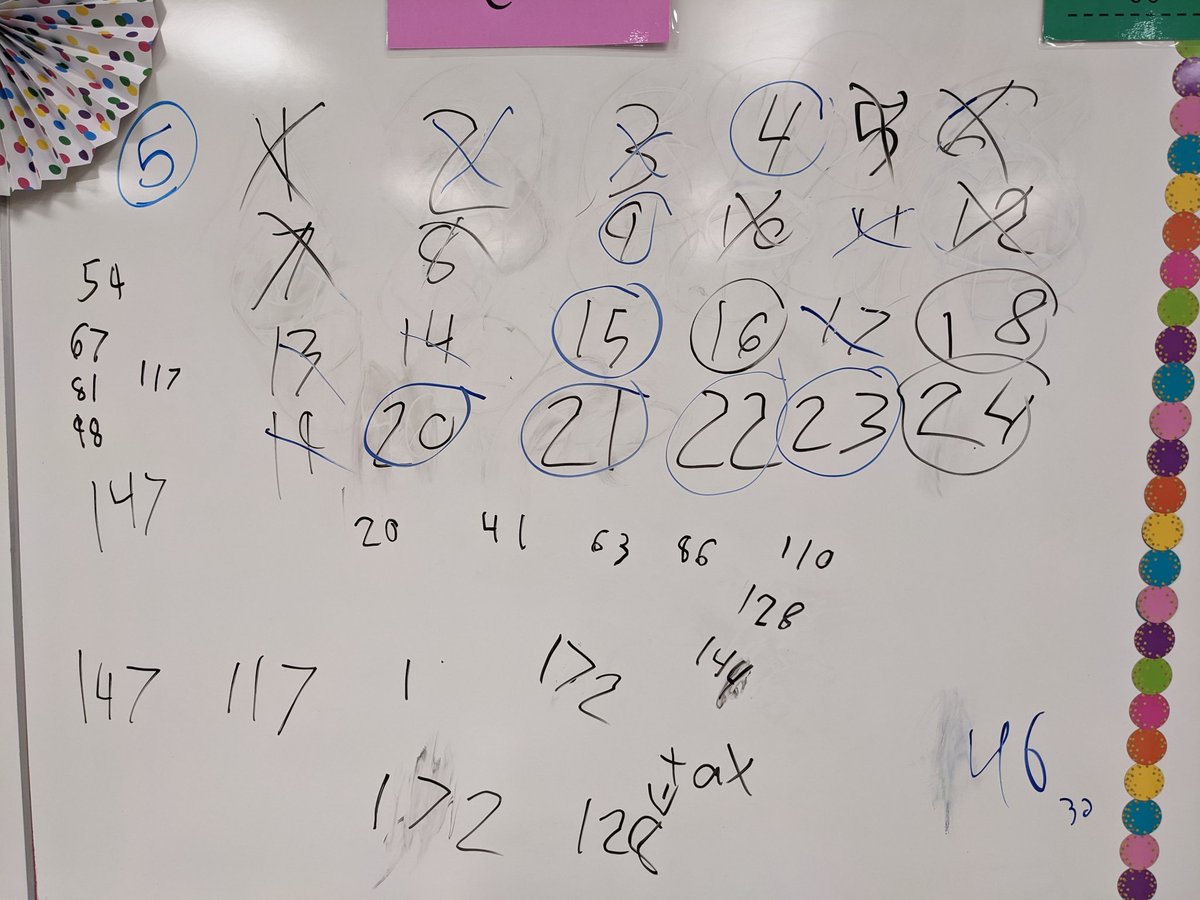 5 1 2 3 4 5 6
7 8 9 10 11 12
54
13 14 15 16 17 18
67
81 117
98
19 20 21 22 23 24
147
20 41 63 86 110
128
147 117 1 172 144
46
30
172 128 ← tax